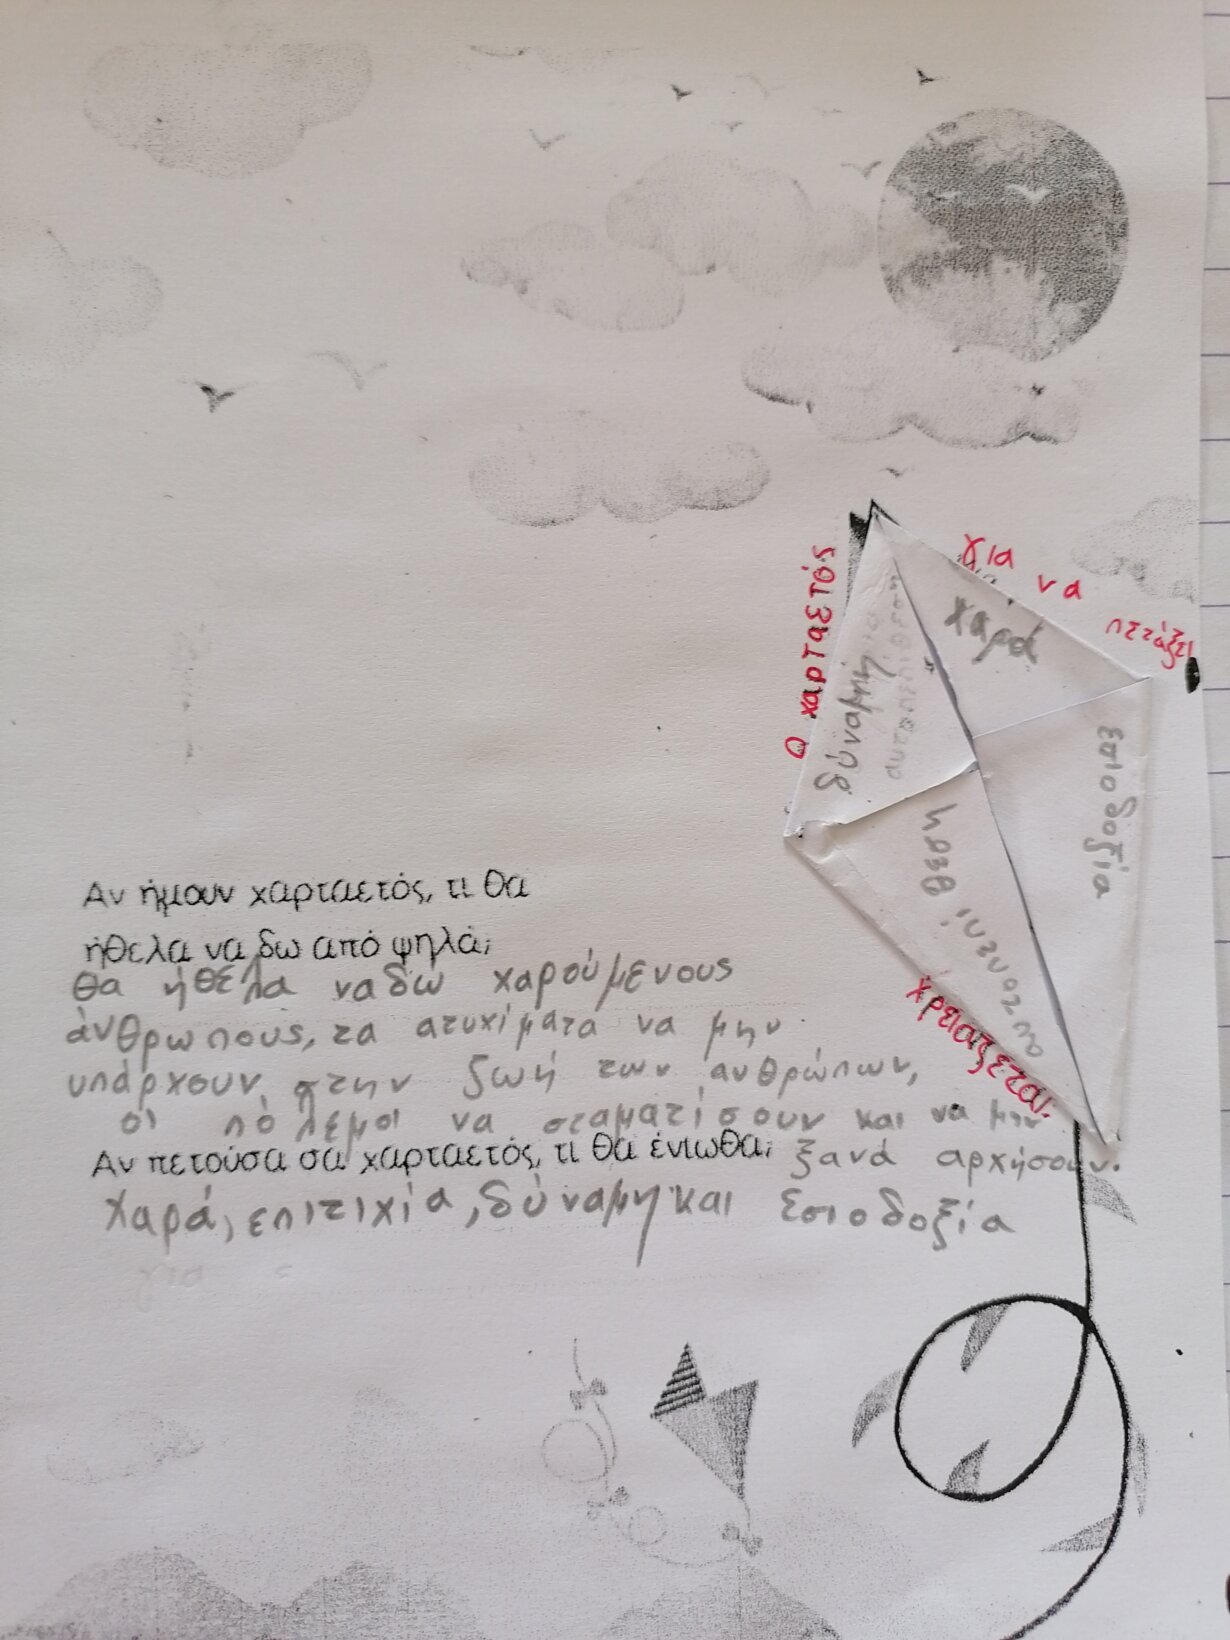 Ο χαρταετός
για να
πετάξει
χρειάζεται:
χαρά
δύναμη
αυτοπεποίθεση
εσιοδοξία
αυτοπεπί θεση
Αν ήμουν χαρταετός, τι θα
ήθελα να δω από ψηλά;
θα ήθελα να δω χαρούμενους
άνθρωπους, τα ατυχίματα να μην
υπάρχουν στην ζωή των ανθρώπων,
οι πόλεμοι να σταματίσουν και να μην
ξανά αρχήσουν.
Αν πετούσα σα χαρταετός, τι θα ένιωθα;
Χαρά, επιτιχία, δύναμη και εσιοδοξία